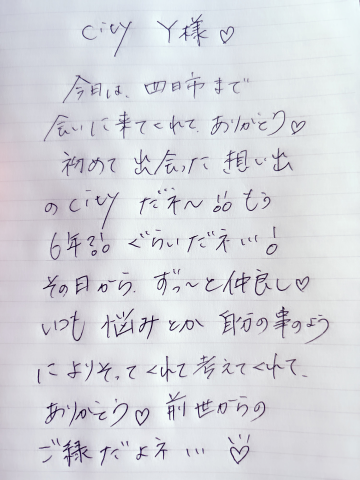 city Y様♡
今日は、四日市まで
会いに来てくれて、ありがとう♡
初めて出会った想い出
のcityだネ〜!!もう
6年?!ぐらいだネ…!
その日から、ずっ〜と仲良し♡
いつも悩みとか自分の事のよう
によりそってくれて考えてくれて、
ありがとう♡前世からの
ご縁だよネ…♡